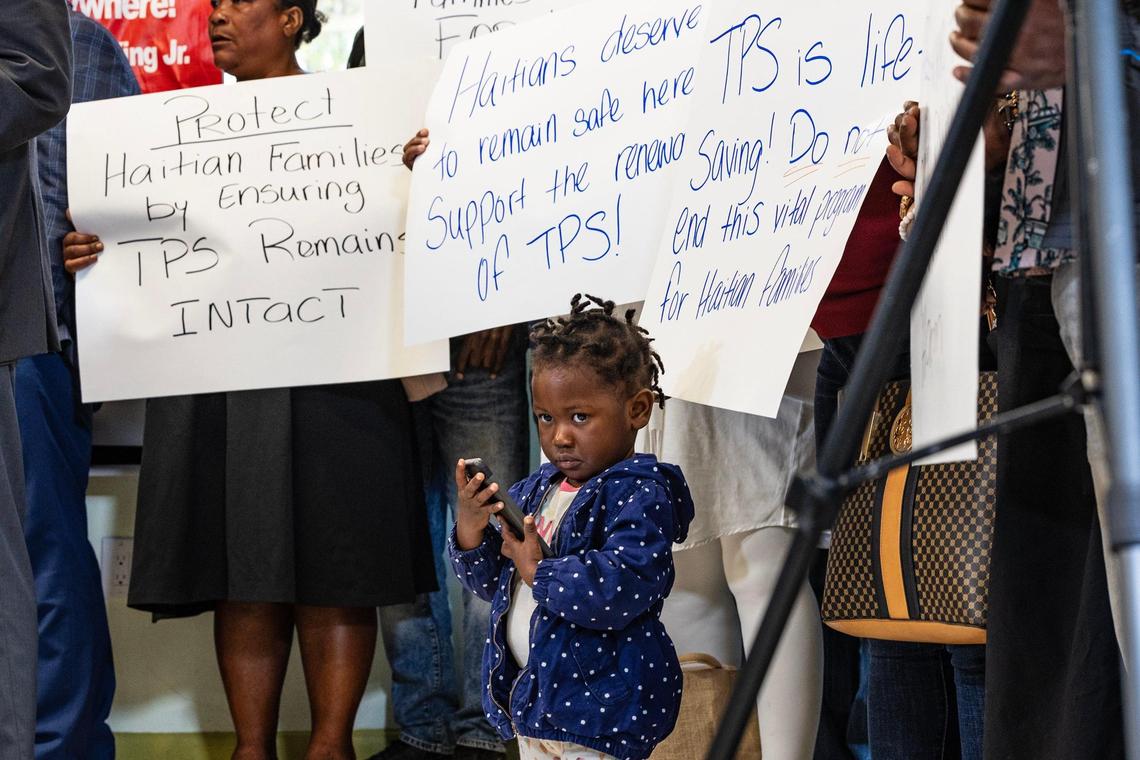 where!
ing Jr.
Families
Protect
Haitian Families
by Ensuring
TPS Remains
INTACT
Haitians deserve
to remain safe here
Support the renewa
of TPS!
TPS is life-
Saving! Do not
end this vital program
for Haitian families